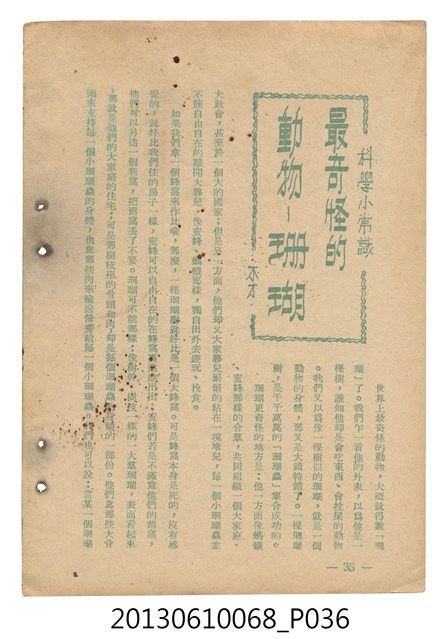 科學小常識
最奇怪的
動物-珊瑚
不才
世界上最奇怪的動物，大概就得數「珊
瑚」了。我們乍一看他的外表，以為他是一
棵樹，誰知他却是會吃東西、會拉屎的動物
。我們又以為像一棵樹似的珊瑚，就是一個
動物的身體，那又是大錯特錯了。一棵珊瑚
樹，是千千萬萬的「珊瑚蟲」集合成功的。
珊瑚更奇怪的地方是：他一方面像螞蟻
、蜜蜂那樣的合羣，共同組織一個大家庭、
大社會，甚至於一個大的國家；但是另一方面，他們却又大夥兒緊緊的粘在一塊堆兒，每一個小珊瑚蟲並
不能自由自在的離開大夥兒，像蜜蜂、螞蟻那樣，獨自出外去遊玩、找食。
如果我們拿一個蜂窩來作比喻，那麼，一棵珊瑚樹就好比是一個大蜂窩。可是蜂窩本身是死的，沒有感
覺的，就好比我們住的房子一樣，蜜蜂可以自由自在的在蜂窩裏進進出出；蜜蜂們若是不滿意他們的舊窩，
他們可以另造一個新窩，把舊窩丟了不要。珊瑚可不能那樣：像樹幹、樹枝一樣的一大叢珊瑚，表面看起來
，那就是他們的大家庭的住宅；可是那樹枝形的骨頭和肉，却是每個珊瑚蟲身體的一部份。他們靠那些大骨
頭來支持每一個小珊瑚蟲的身體，也靠那些肉來輸送營養給每一個小珊瑚蟲。我們也可以說：當某一個珊瑚
— 35 —
20130610068_P036